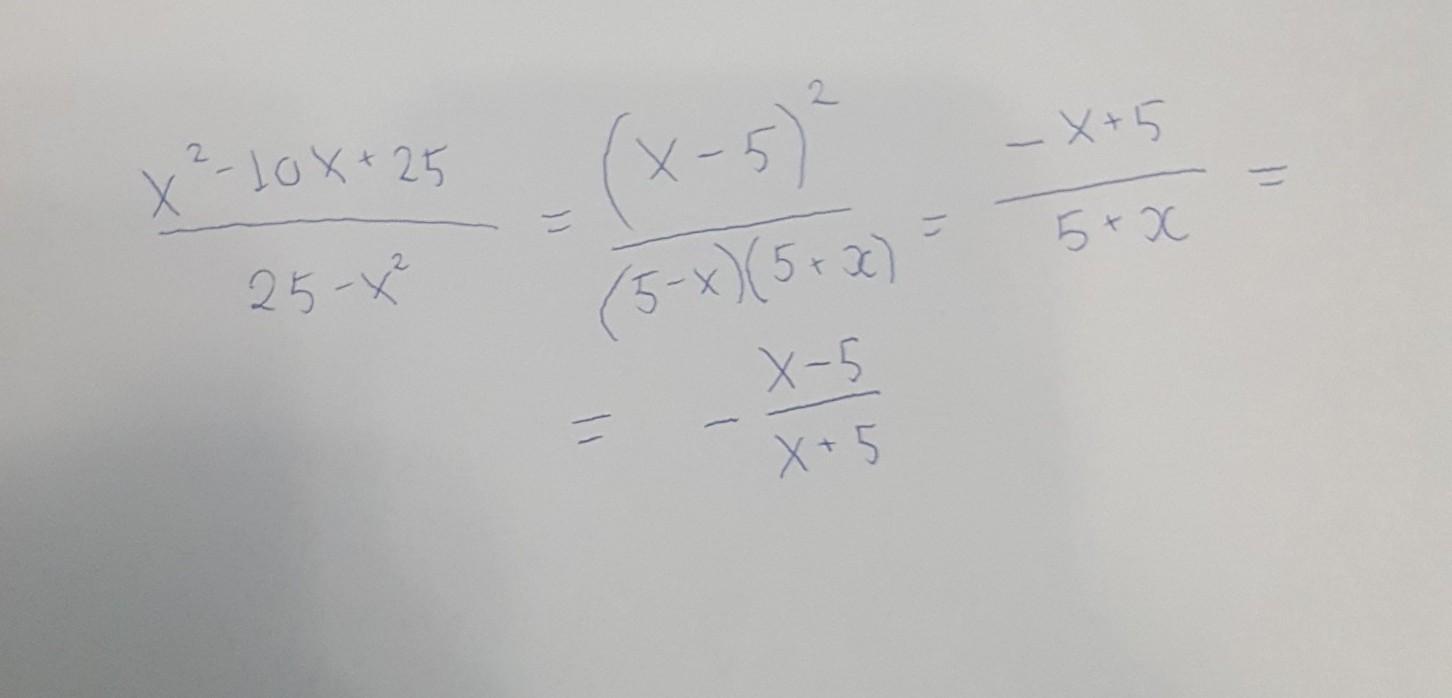 (x²-10x+25)/(25-x²) = (x-5)²/((5-x)(5+x)) = (-x+5)/(5+x) =
= -(x-5)/(x+5)